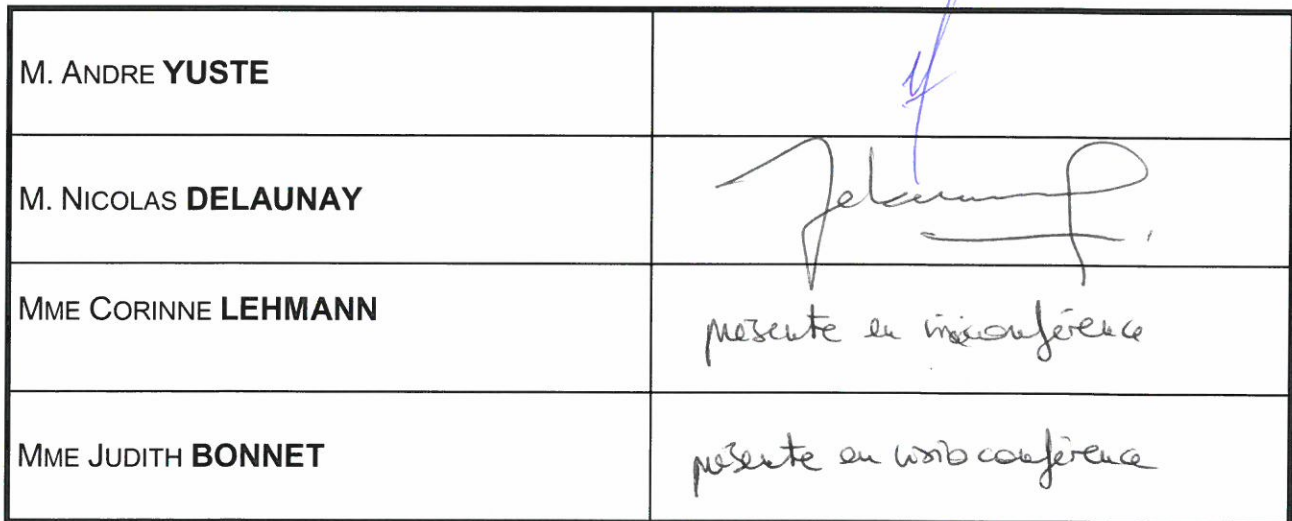 M. ANDRE YUSTE
M. NICOLAS DELAUNAY
MME CORINNE LEHMANN
présente en visioconférence
MME JUDITH BONNET
présente en visioconférence